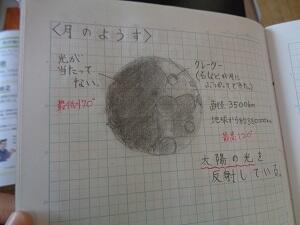 〈月のようす〉
光が
当たって
ない。
最低-170°
クレーター
(石などが月に
ぶつかってできた。)
直径3500km
地球から約380000km
最高120°
太陽の光を
反射している。